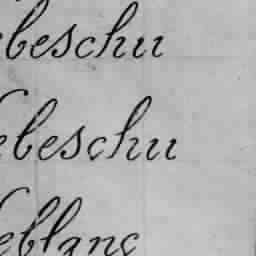 ebeschu
ebeschu
eblanc